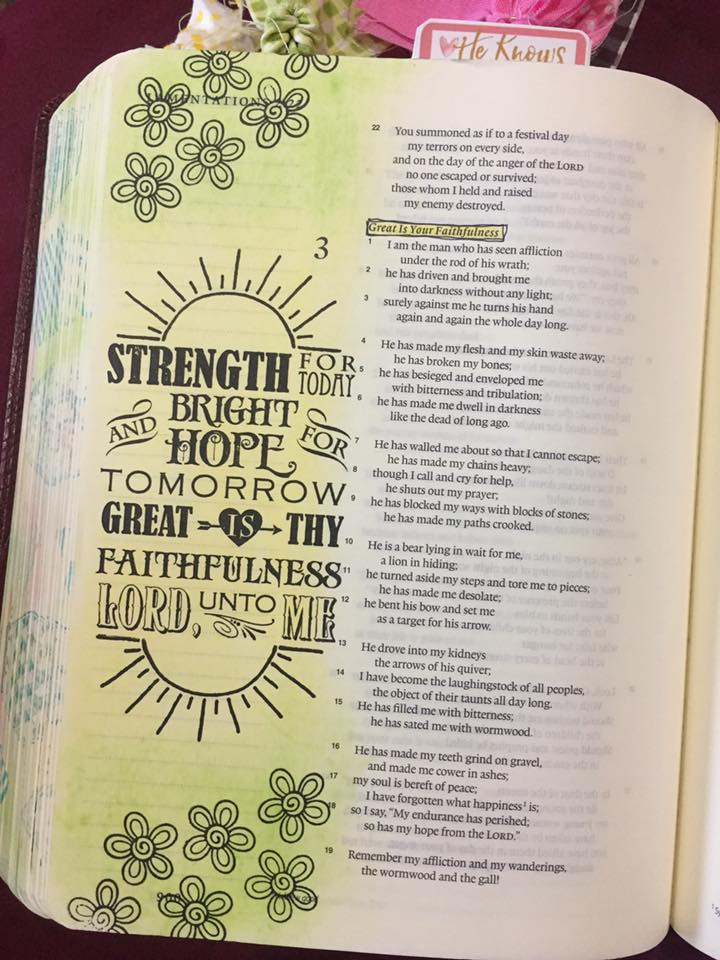 He Knows
LAMENTATIONS
3
STRENGTH FOR TODAY
BRIGHT
AND HOPE FOR
TOMORROW
GREAT IS THY
FAITHFULNESS
LORD, UNTO ME
22 You summoned as if to a festival day
my terrors on every side,
and on the day of the anger of the LORD
no one escaped or survived;
those whom I held and raised
my enemy destroyed.
Great Is Your Faithfulness
1 I am the man who has seen affliction
under the rod of his wrath;
2 he has driven and brought me
into darkness without any light;
3 surely against me he turns his hand
again and again the whole day long.
4 He has made my flesh and my skin waste away;
he has broken my bones;
5 he has besieged and enveloped me
with bitterness and tribulation;
6 he has made me dwell in darkness
like the dead of long ago.
7 He has walled me about so that I cannot escape;
he has made my chains heavy;
8 though I call and cry for help,
he shuts out my prayer;
9 he has blocked my ways with blocks of stones;
he has made my paths crooked.
10 He is a bear lying in wait for me,
a lion in hiding;
11 he turned aside my steps and tore me to pieces;
he has made me desolate;
12 he bent his bow and set me
as a target for his arrow.
13 He drove into my kidneys
the arrows of his quiver;
14 I have become the laughingstock of all peoples,
the object of their taunts all day long.
15 He has filled me with bitterness;
he has sated me with wormwood.
16 He has made my teeth grind on gravel,
and made me cower in ashes;
17 my soul is bereft of peace;
I have forgotten what happiness¹ is;
18 so I say, “My endurance has perished;
so has my hope from the LORD.”
19 Remember my affliction and my wanderings,
the wormwood and the gall!